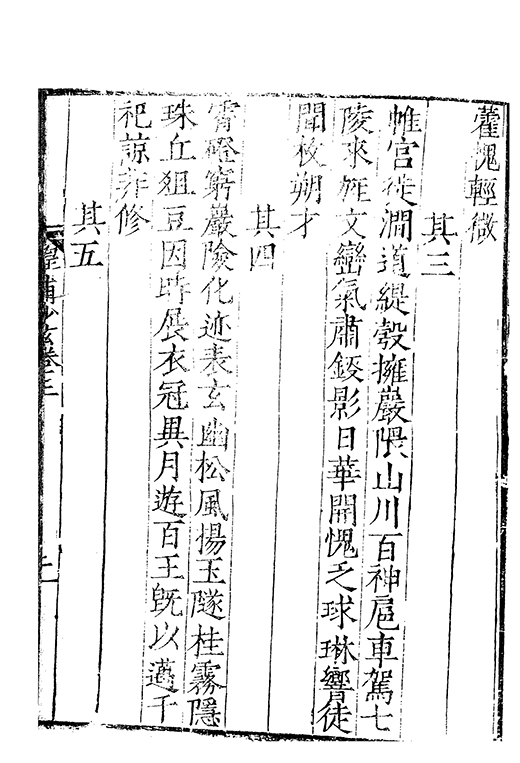 藿愧輕微
其三
帷宮從澗道緹轂擁巖隈山川百神扈車駕七
陵來旌文巒氣肅鋄影日華開愧乏球琳響徒
聞枚朔才
其四
霄磴窮巖險化迹表玄幽松風揚玉隧桂霧隱
珠丘俎豆因時展衣冠異月遊百王旣以邁千
祀諒莾修
其五
皇甫少玄卷三